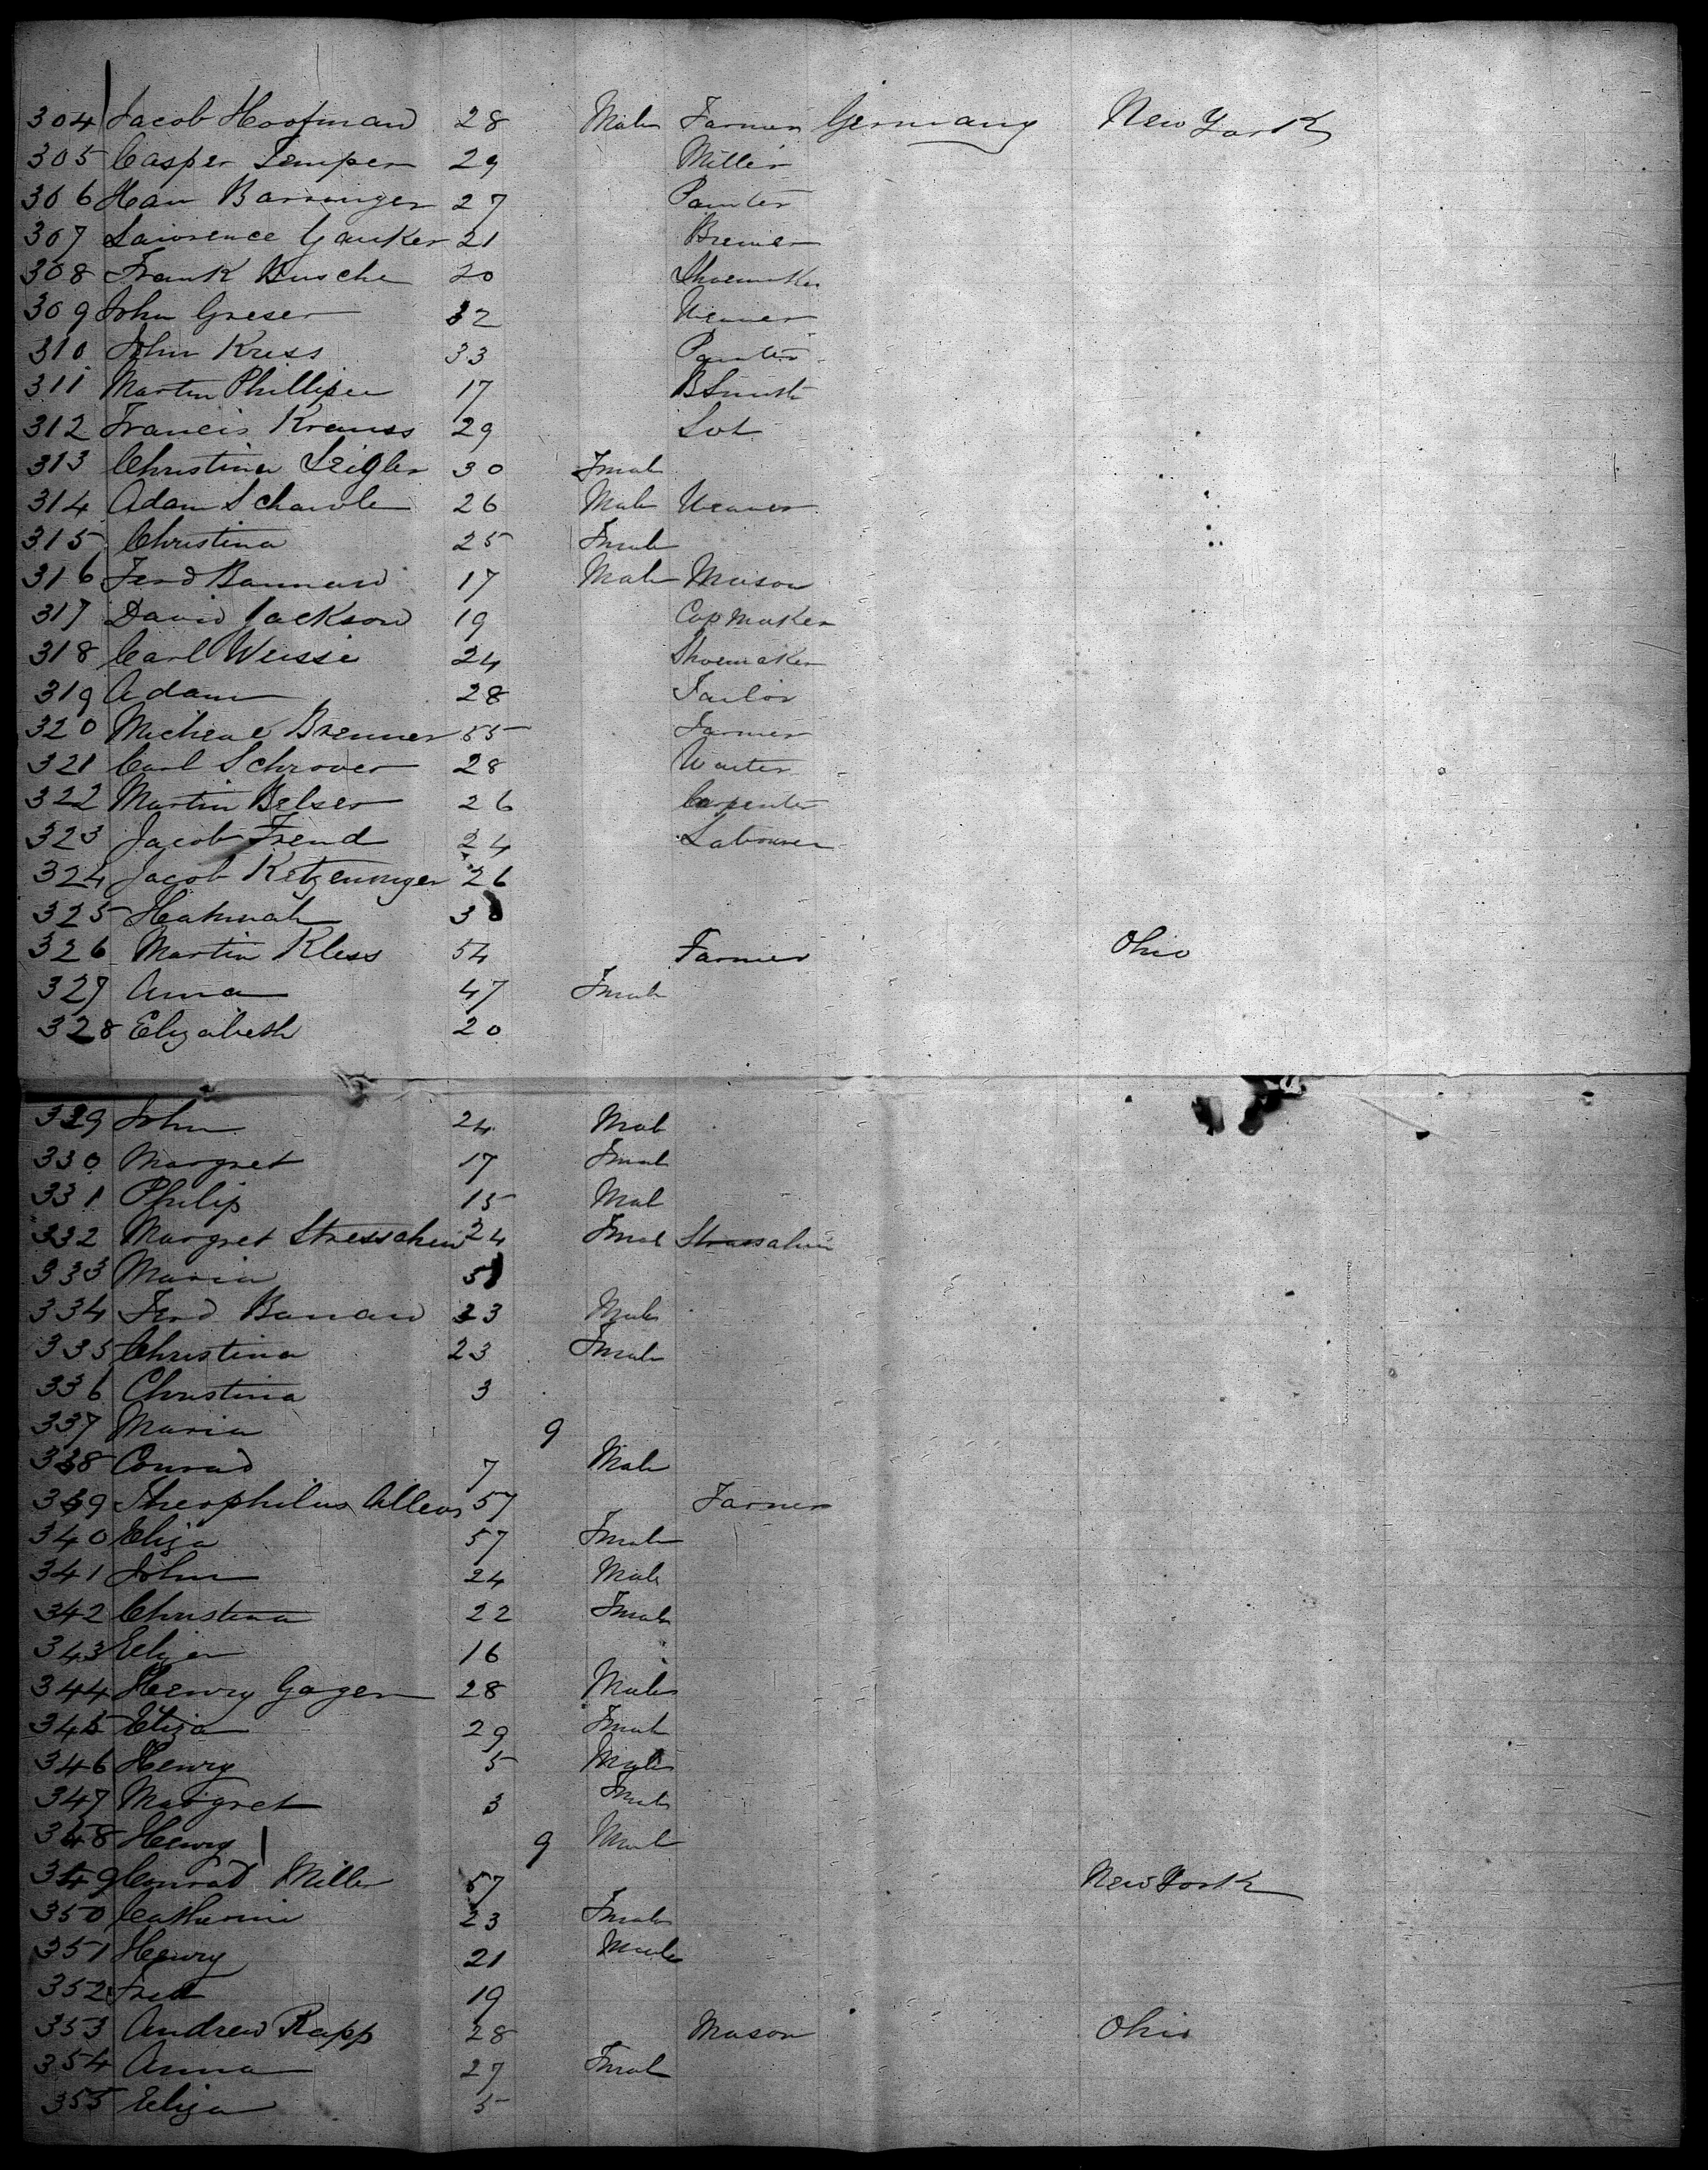 304 Jacob Hoofman 28 Male Farmer Germany New York
305 Casper Temper 29 Miller
306 Han Barringer 27 Painter
307 Lawrence Yauker 21 Brewer
308 Frank Busche 20 Shoemaker
309 John Greser 32 Weaver
310 John Kress 33 Painter
311 Martin Phillipee 17 BSmith
312 Francis Krauss 29
313 Christina Zeigler 30 Fmale
314 Adam Schawle 26 Male Weaver
315 Christina 25 Fmale
316 Ferd Bauman 17 Male Mason
317 David Jackson 19 Cap Maker
318 Carl Weisse 24 Shoemaker
319 Adam 28 Tailor
320 Micheal Brenner 55 Farmer
321 Carl Schrover 28 Waiter
322 Martin Belser 26 Carpenter
323 Jacob Frend 24 Labourer
324 Jacob Ketzeninger 26
325 Hahnnah 30
326 Martin Kless 54 Farmer Ohio
327 Anna 47 Fmale
328 Elizabeth 20
329 John 24 Male
330 Margret 17 Fmale
331 Philip 15 Male
332 Margret 24 Fmale
333 Maria
334 Ferd Bauman 23 Male
335 Christina 23 Fmale
336 Christina 3
337 Maria 9
338 Conrad 7 Male
339 Theophilus 57 Farmer
340 Eliza 57 Fmale
341 John 24 Male
342 Christina 22 Fmale
343 Eliza 16
344 Henry Gager 28 Male
345 Eliza 29 Fmale
346 Henry 5 Male
347 Margret 3 Fmale
348 Henry 9 Male
349 Conrad Miller 57 New York
350 Catherine 23 Fmale
351 Henry 21 Male
352 Fred 19
353 Andrew Rapp 28 Mason Ohio
354 Anna 27 Fmale
355 Eliza 5